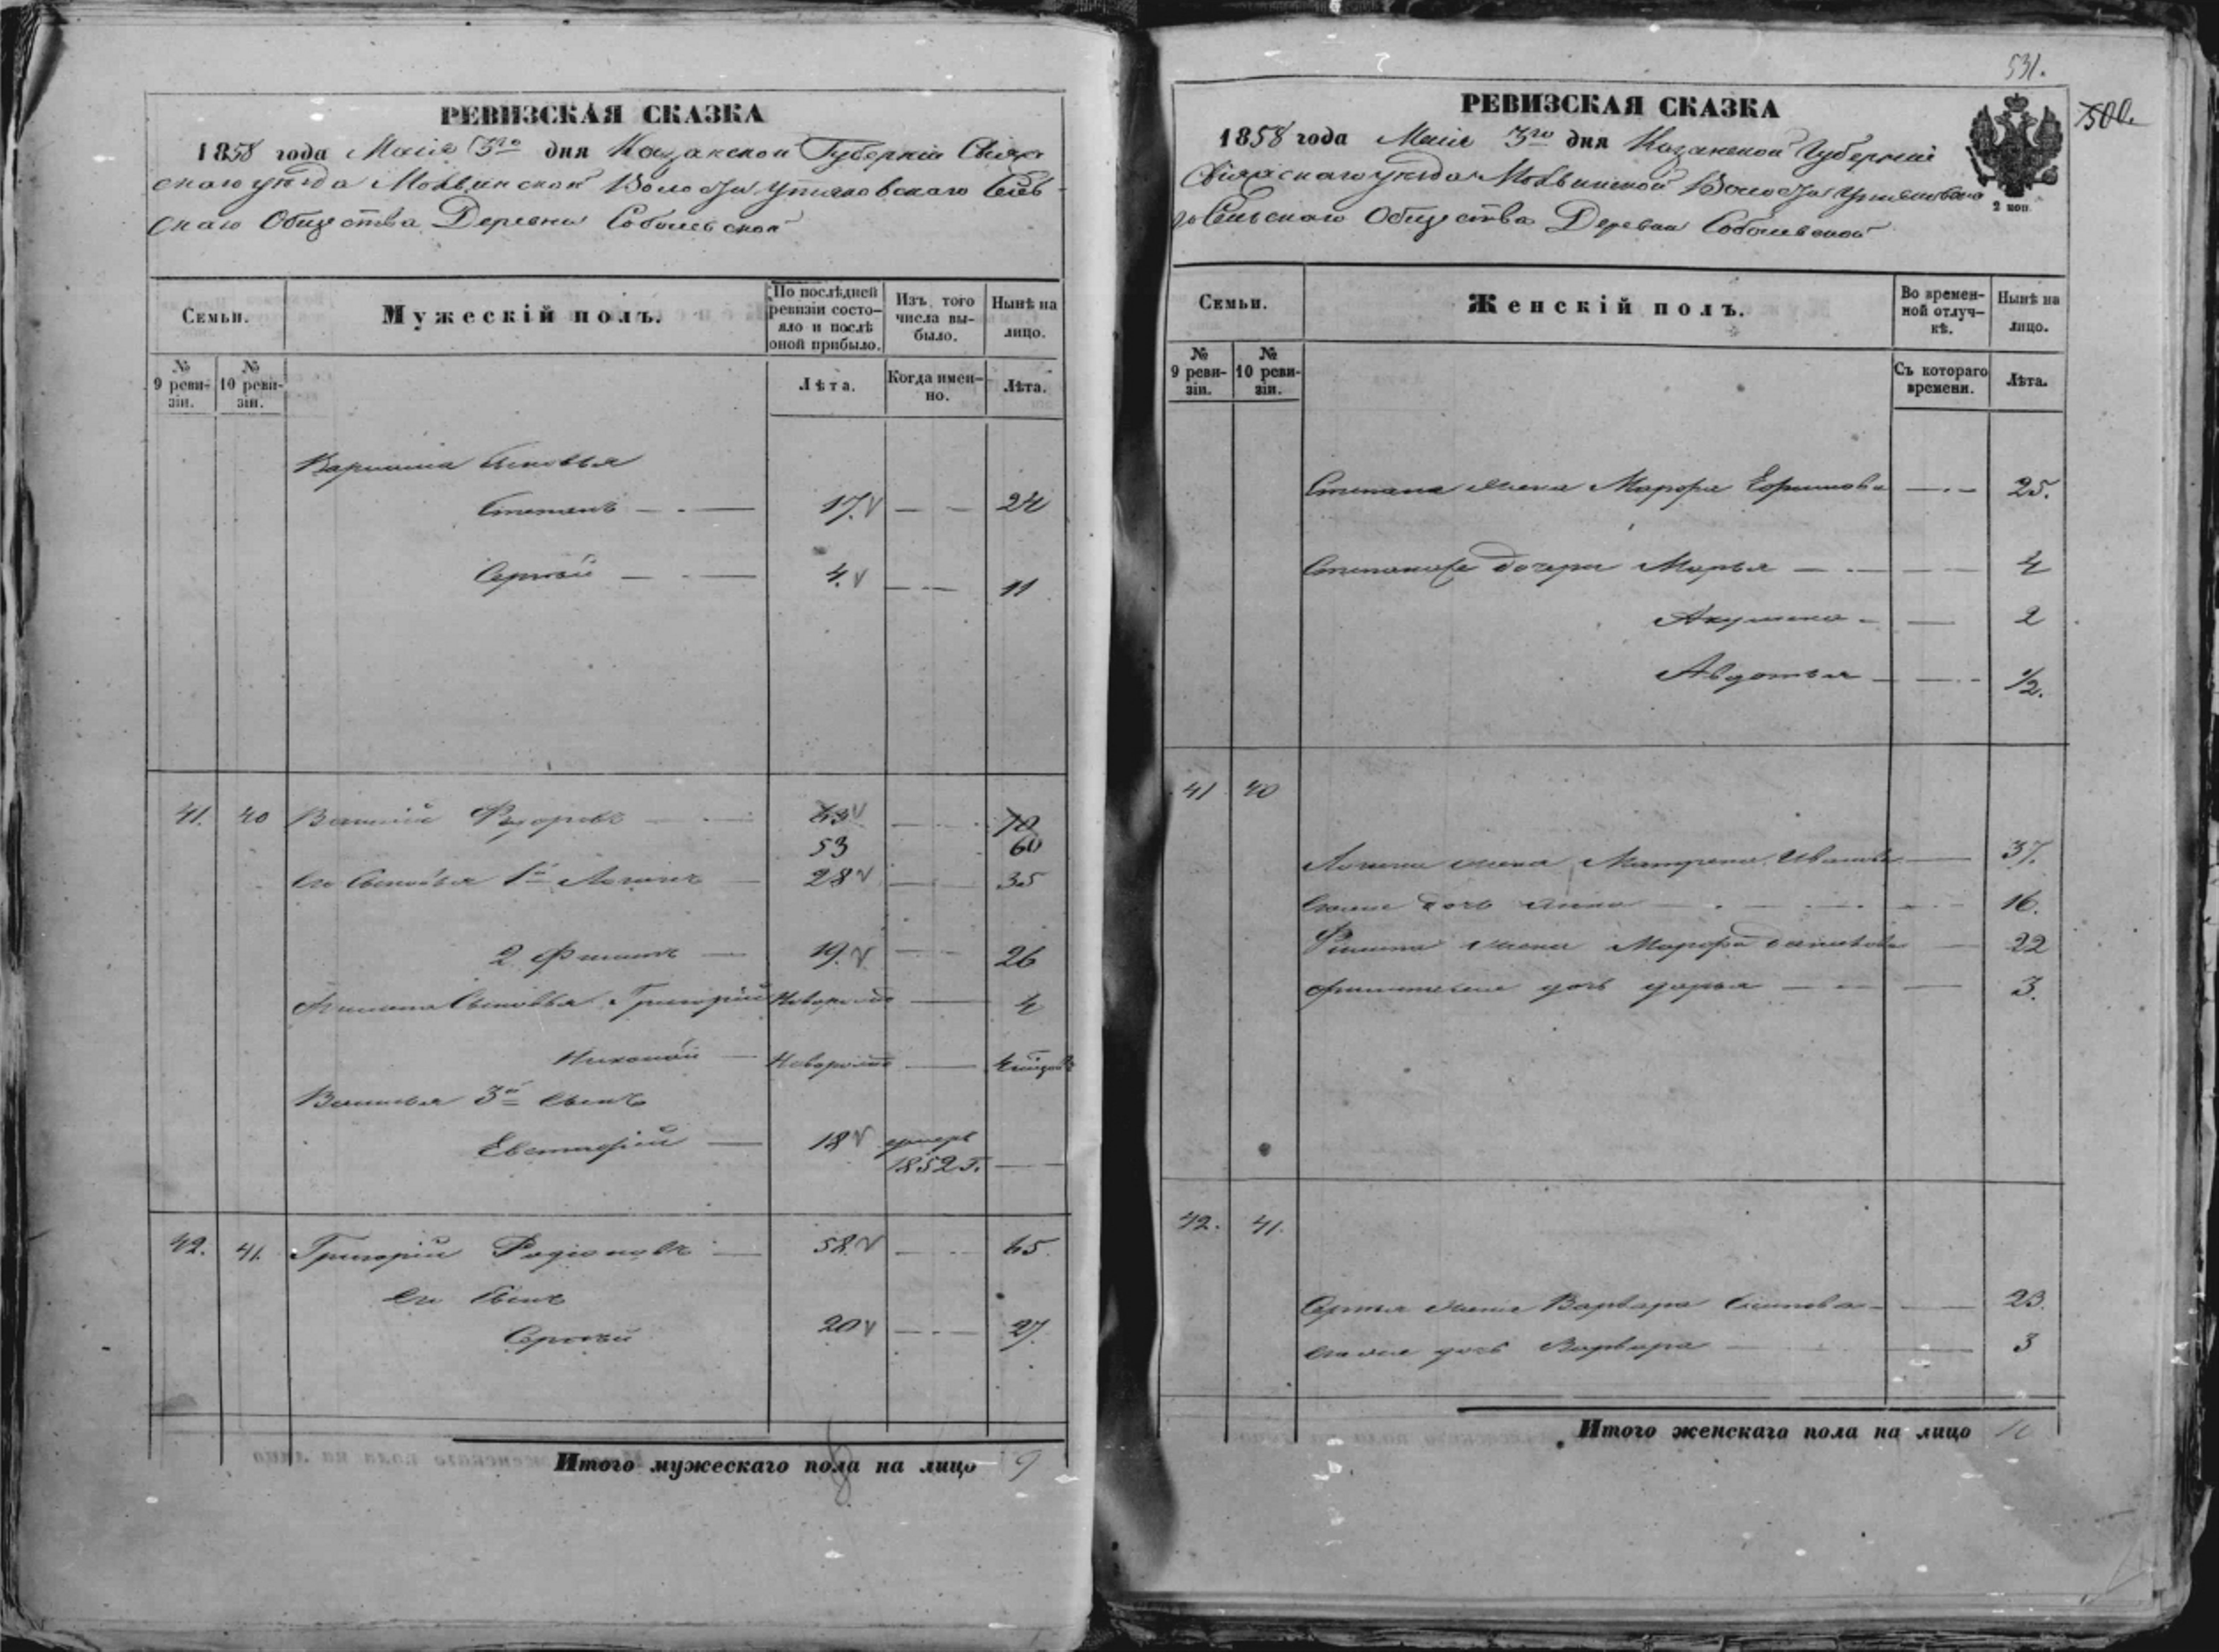 РЕВИЗСКАЯ СКАЗКА
1858 года Маія 3го дня Казанской Губерніи Свіяж
скаго уѣзда Волости Утяковскаго Сель
скаго Общества Деревни Соболевской
Семьи.
Мужескій полъ.
По послѣдней ревизіи состо-
яло и послѣ оной прибыло.
Изъ того числа вы-
было.
Нынѣ на лицо.
№ 9 реви-
зіи.
№ 10 реви-
зіи.
Лѣта.
Когда имен-
но.
Лѣта.
сыновья
Степанъ 17. 24
Сергѣй 4. 11
41. 40 Василій Ѳедоровъ 63 70
53 60
Его Сыновья 1й Логинъ 28 35
2 Филипъ 19. 26
Сыновья Григорій новорож 4
Николай новорож
Василья 3й сынъ
Евстафій 18 умеръ
1852 г.
42. 41. Григорій Родіоновъ 58. 65.
Его Сынъ
Сергѣй 20 27.
Итого мужескаго пола на лицо 9
8
531.
500.
РЕВИЗСКАЯ СКАЗКА
2 коп.
1858 года Маія 3го дня Казанской Губерніи
Свіяжскаго уѣзда Волости Утяковска
го Сельскаго Общества Деревни Соболевской
Семьи.
Женскій полъ.
Во времен-
ной отлуч-
кѣ.
Нынѣ на лицо.
№ 9 реви-
зіи.
№ 10 реви-
зіи.
Съ котораго времени.
Лѣта.
Степана жена Марфа Ефимова 25.
дочери Марья 4
Акулина 2
Авдотья 1/2.
41. 40
Логина жена Матрена Иванова 37.
дочь Анна 16.
Филипа жена Марфа 22
дочь Дарья 3.
42. 41.
Сергѣя жена Варвара 23.
дочь Варвара 3
Итого женскаго пола на лицо 10